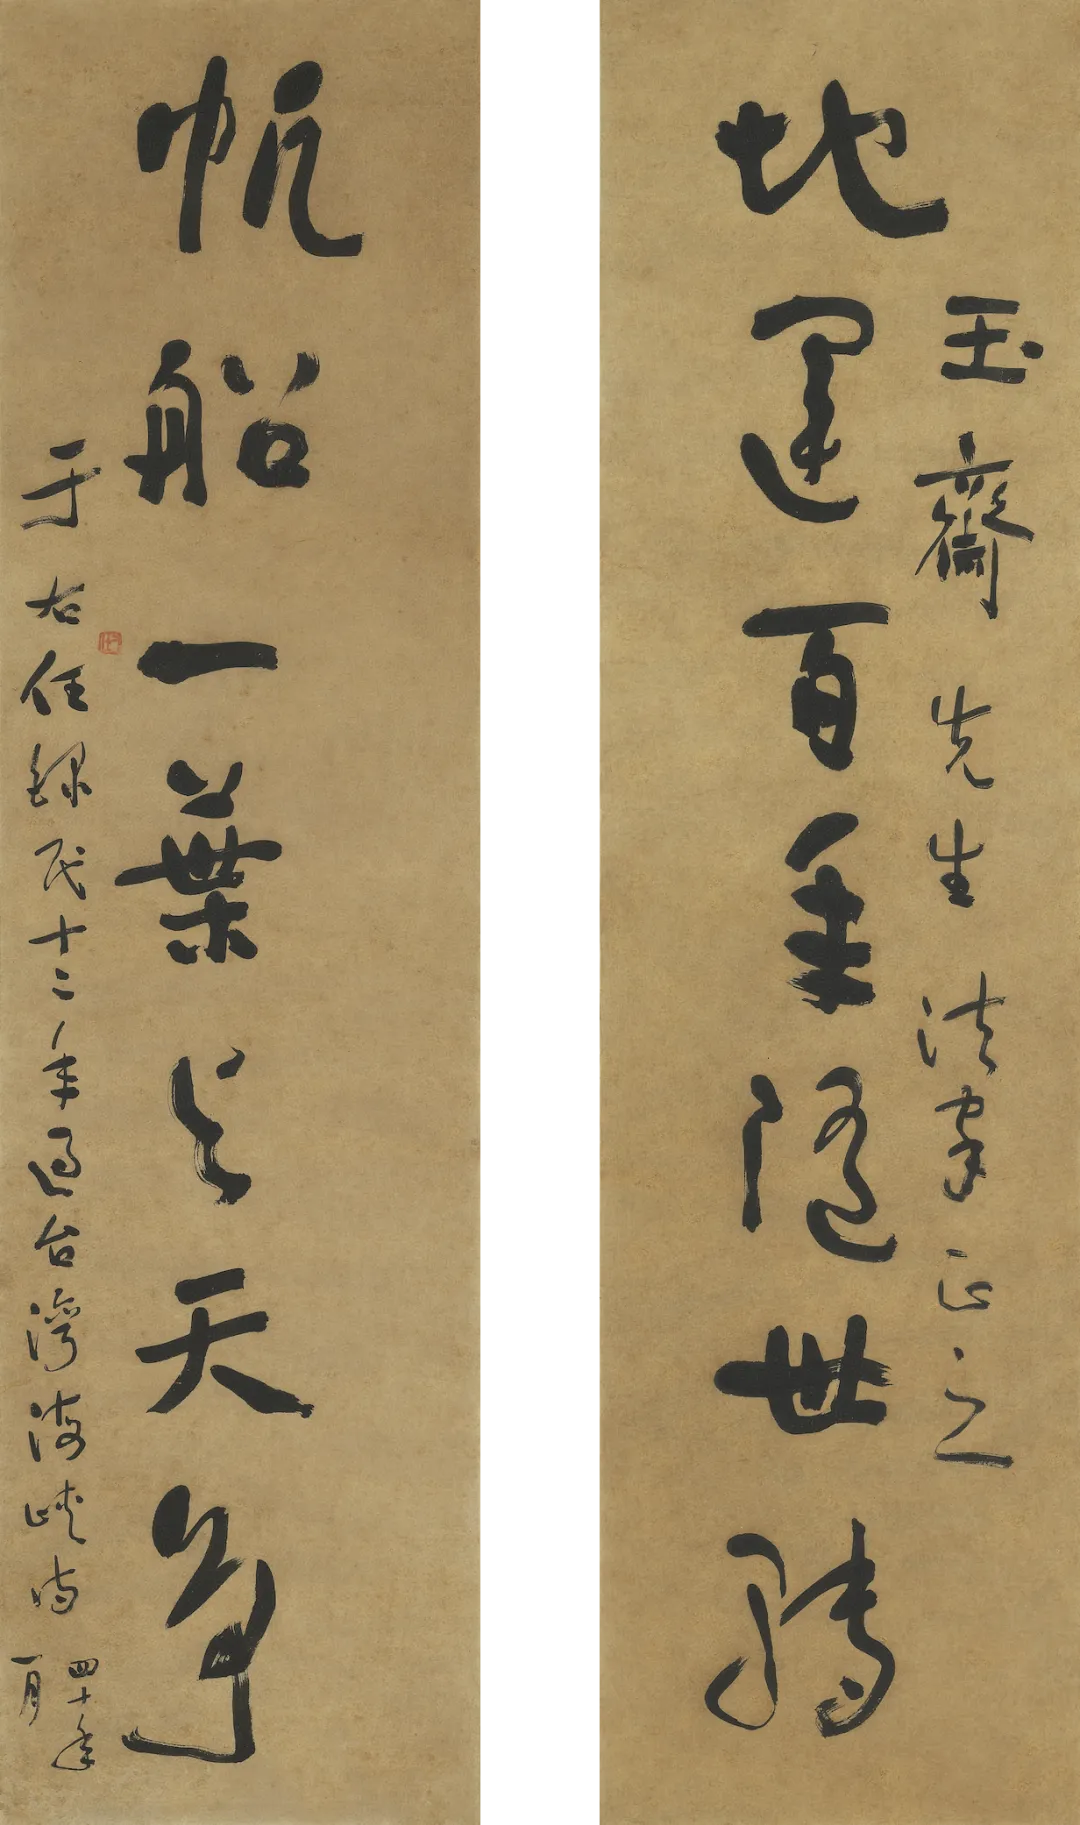 玉齋先生法家正之
地運百年隨世轉
帆船一葉與天爭
于右任錄民十二年過台灣海峽詩
四十年
一月